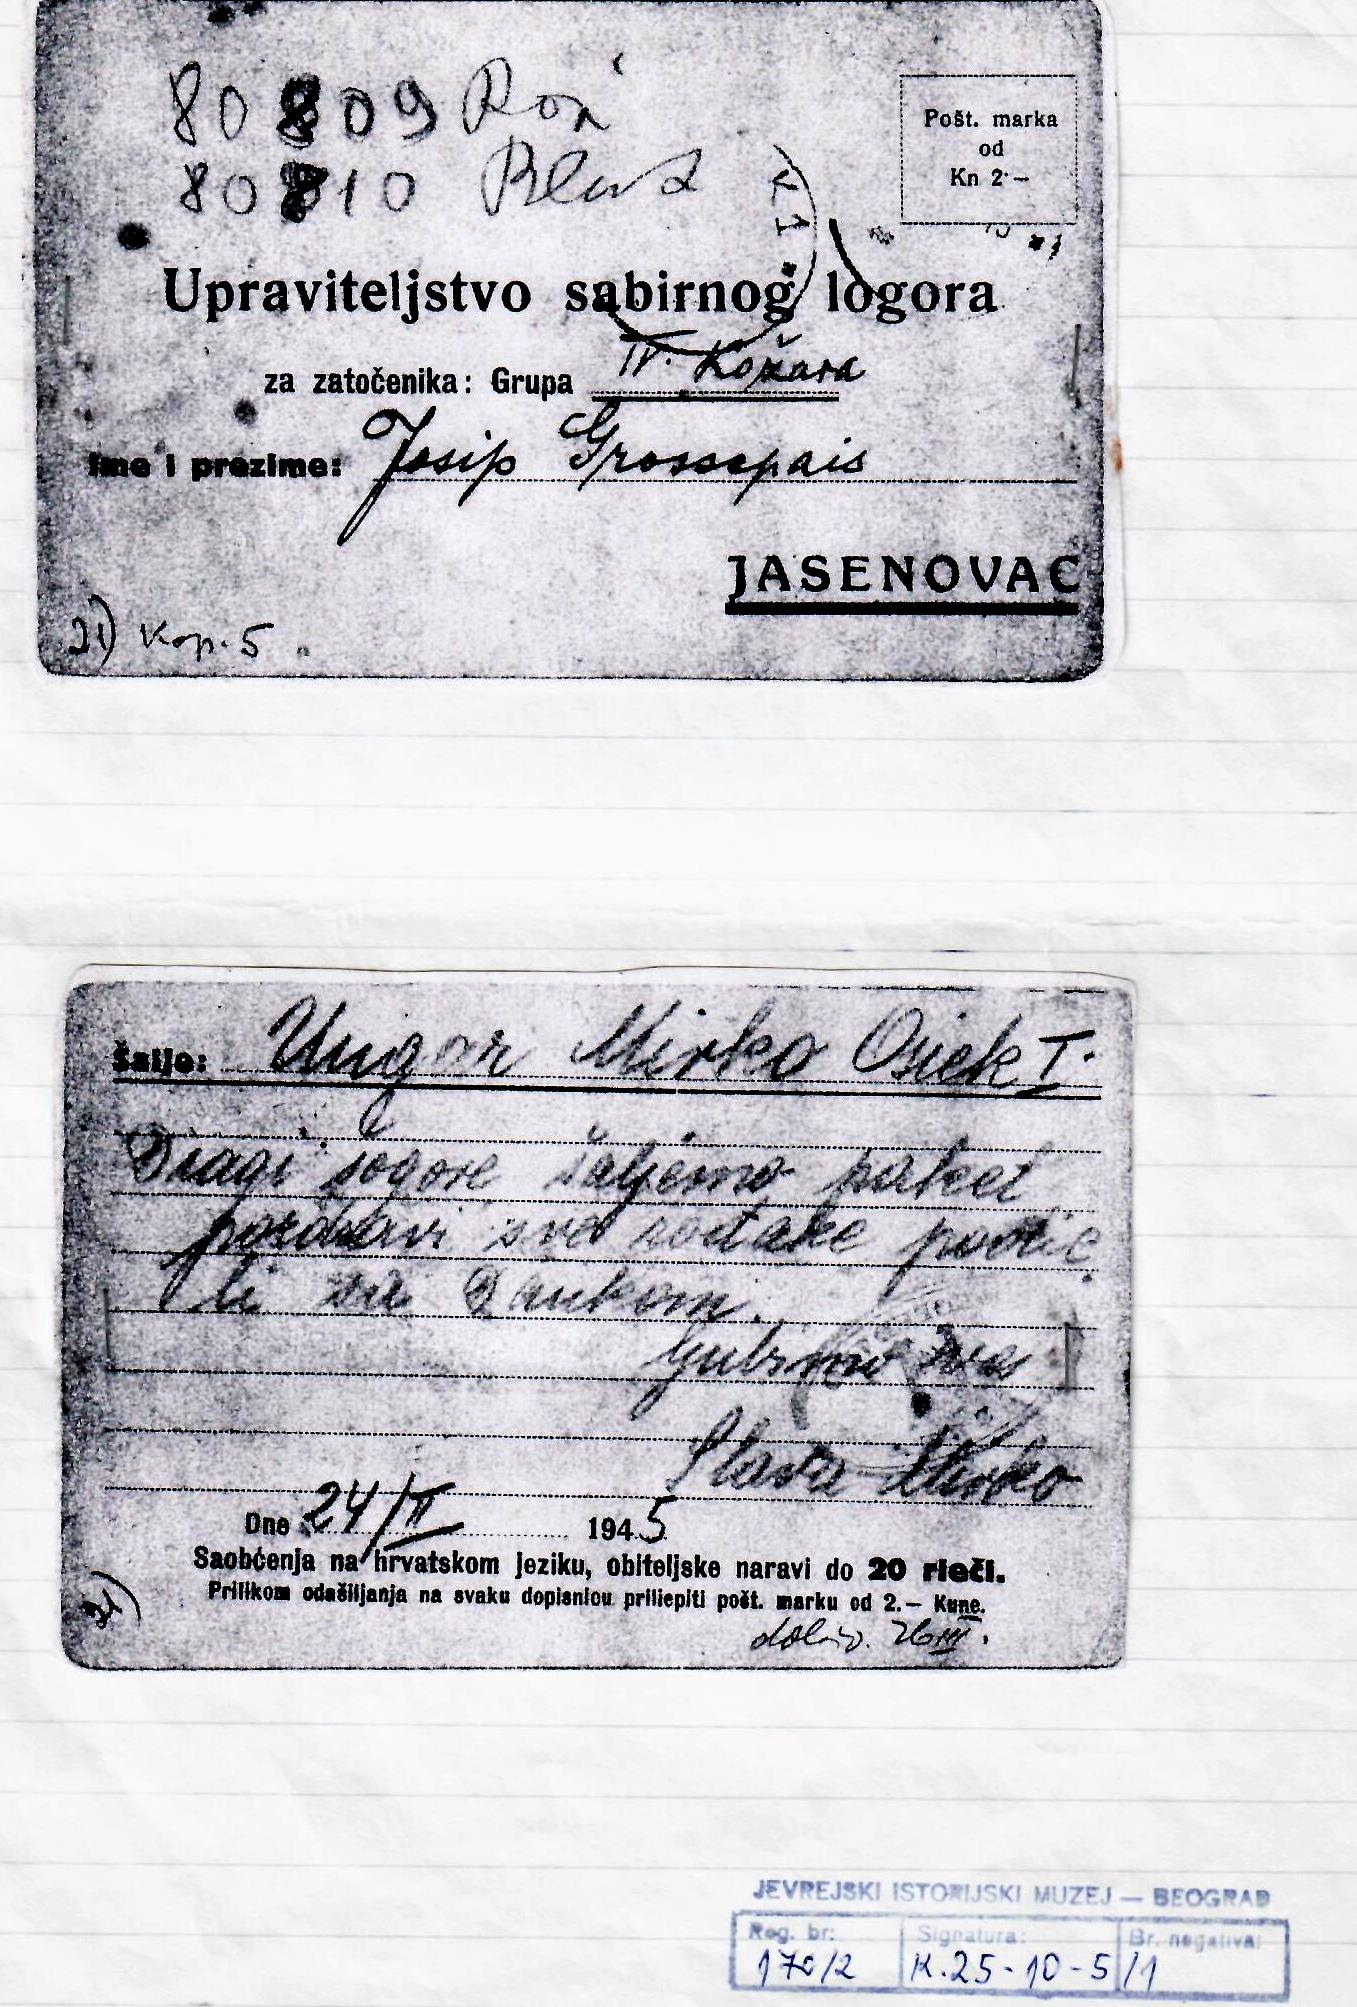 80809
80810
Pošt. marka
od
Kn 2·—
Upraviteljstvo sabirnog logora
za zatočenika: Grupa IV. Kožara
Ime i prezime: Josip Grossepais
JASENOVAC
21) Kop. 5
Šalje: Ungar Mirko Osiek I.
Dragi šogore šaljemo paket
pozdravi sve rođake
li sa Dankom.
ljubimo Vas
Slava Mirko
Dne 24/II 1945
Saobćenja na hrvatskom jeziku, obiteljske naravi do 20 rieči.
Prilikom odašiljanja na svaku dopisnicu priliepiti pošt. marku od 2.— Kune.
21)
26 III.
JEVREJSKI ISTORIJSKI MUZEJ — BEOGRAD
Reg. br: Signatura: Br. negativa:
170/2 K.25-10-5/1